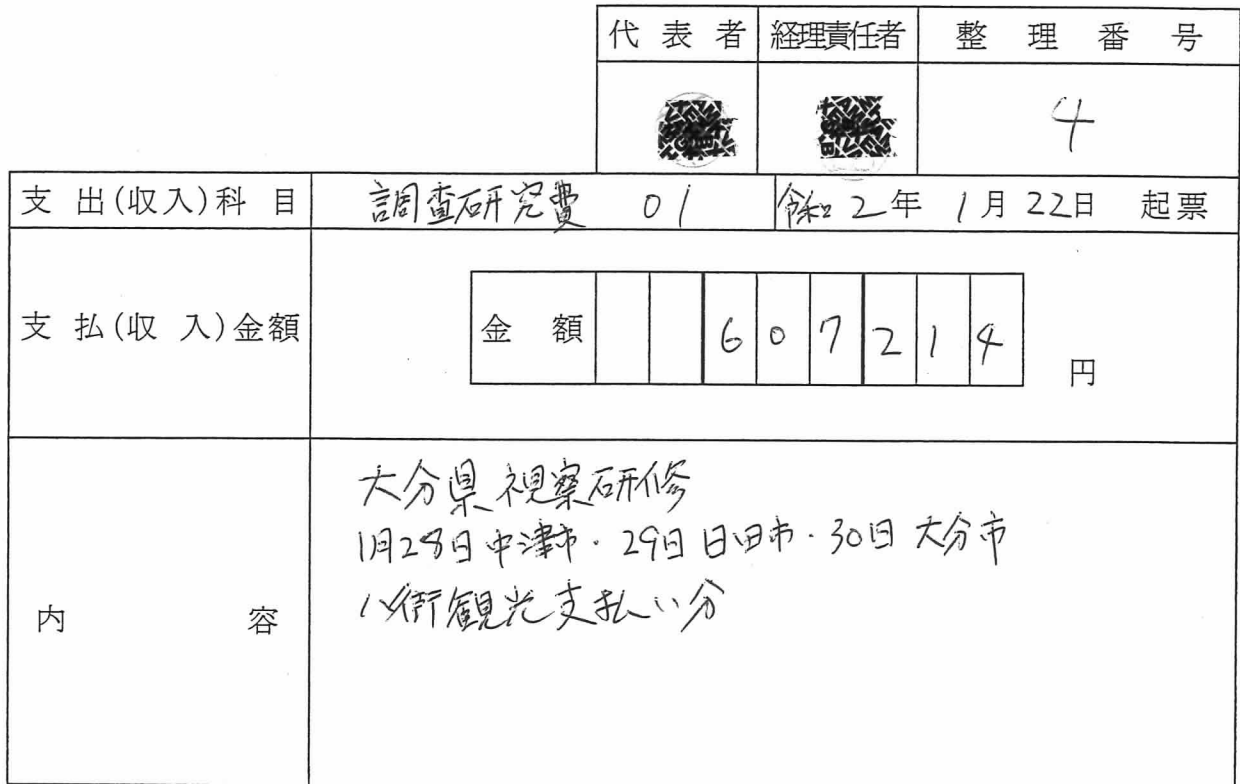 代表者 経理責任者 整理番号
4
支出(収入)科目 調査研究費 01 令和2年 1月22日 起票
支払(収入)金額 金額 607214 円
内容
大分県視察研修
1月28日中津市・29日日田市・30日大分市
八街観光支払い分